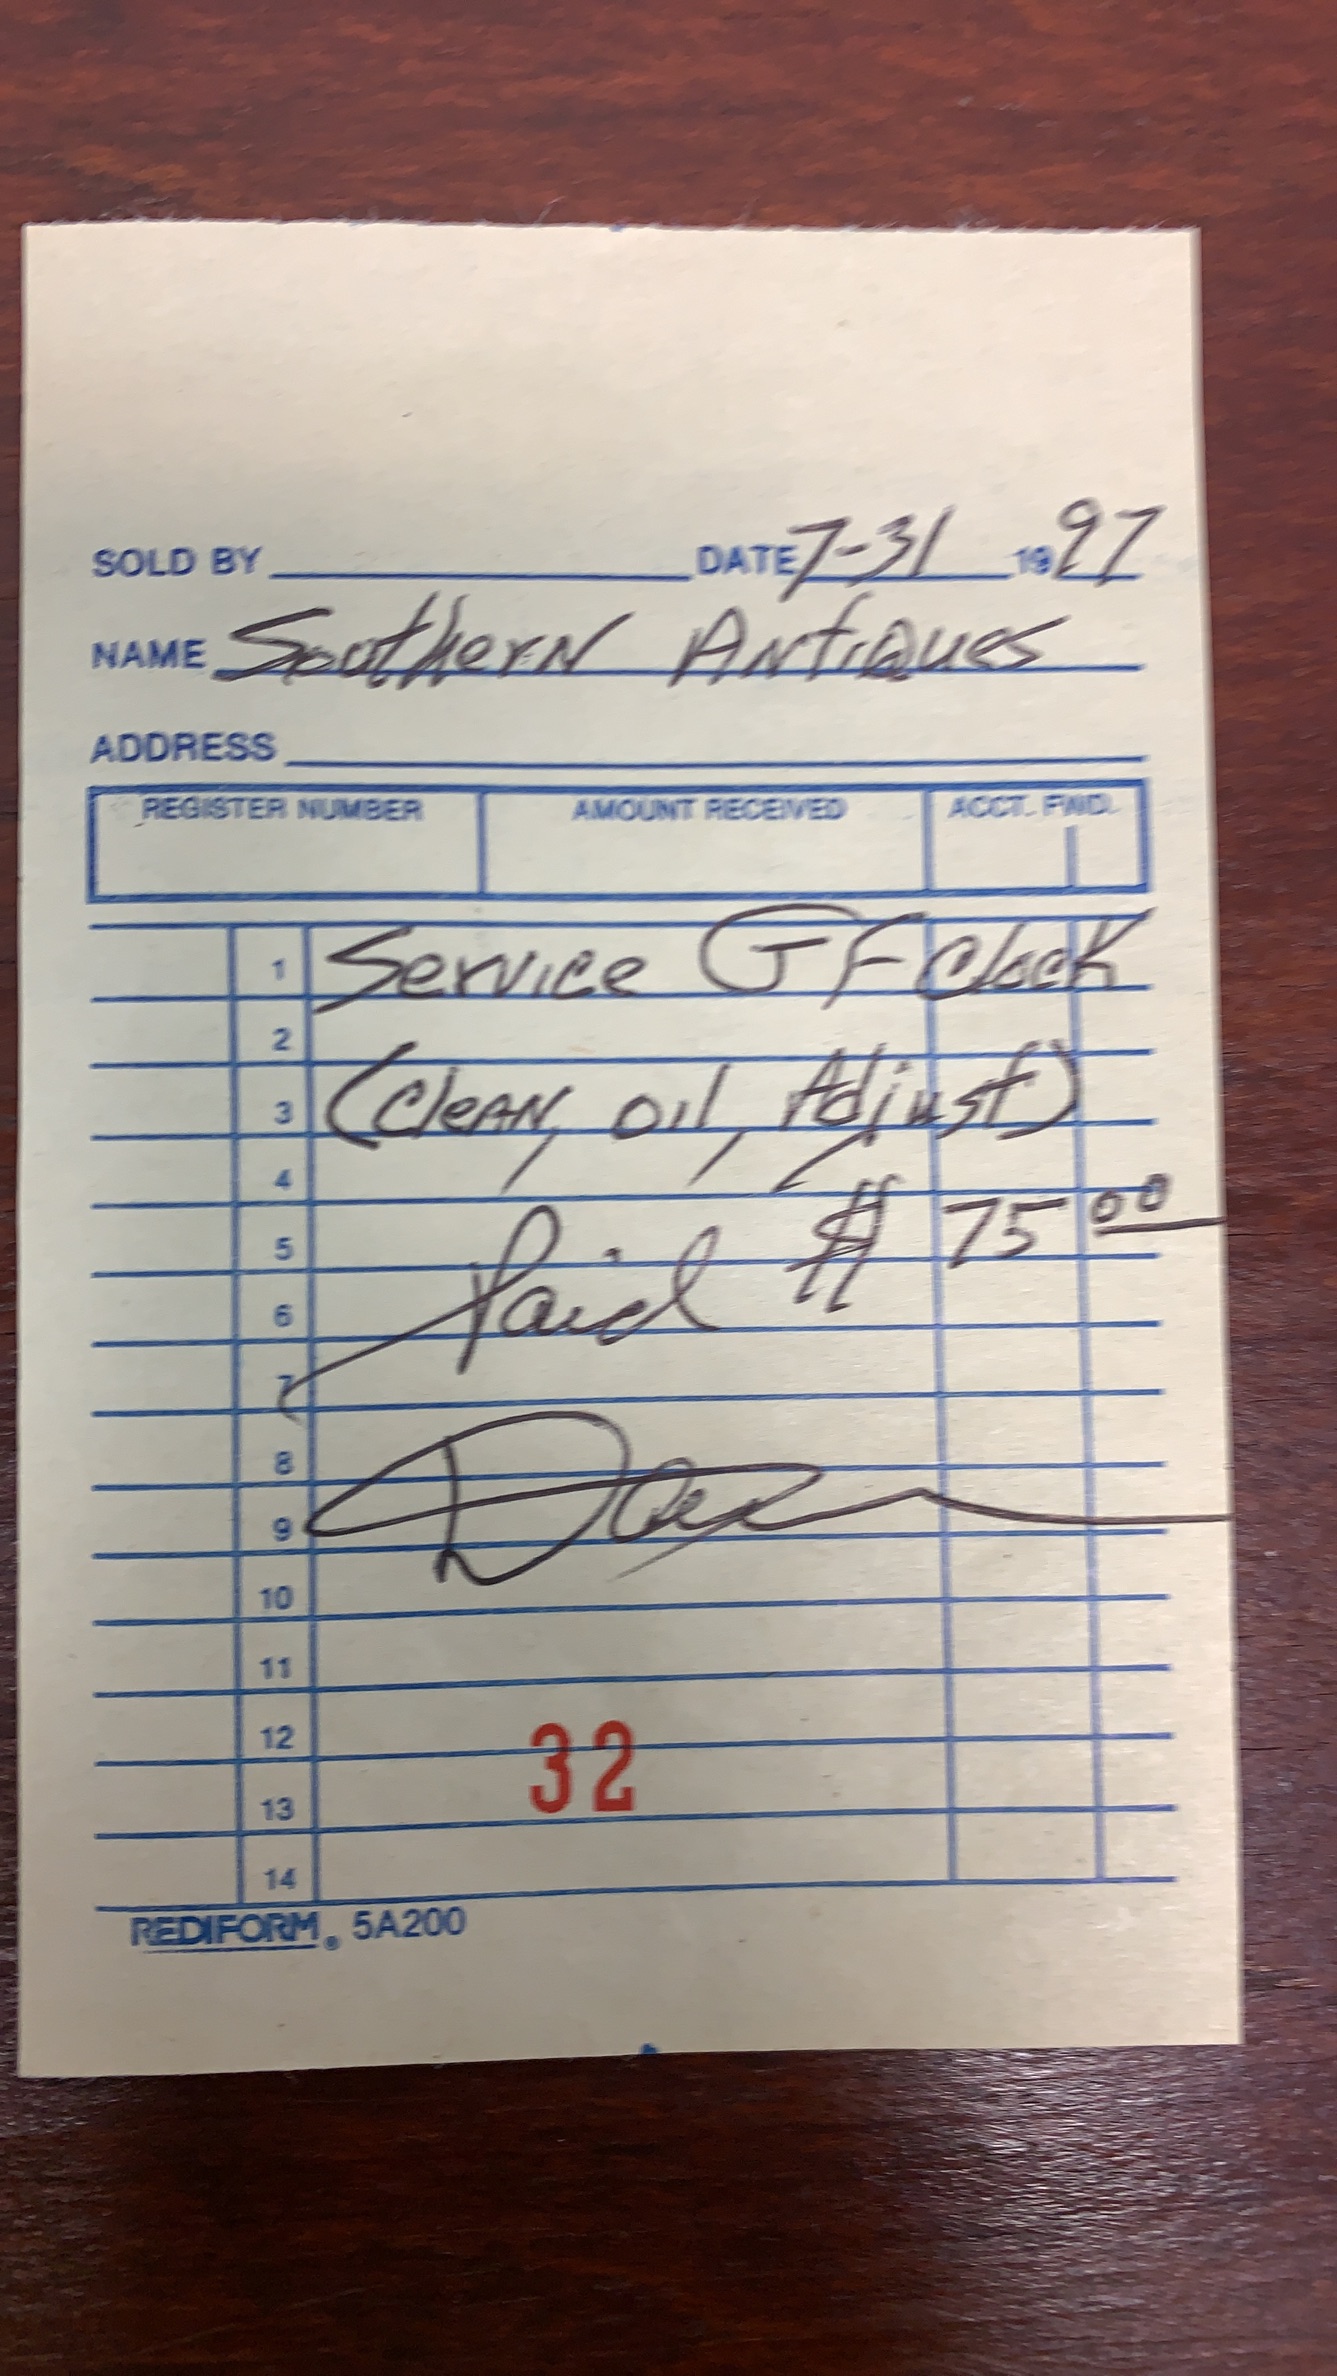 SOLD BY DATE 7-31 1997
NAME Southern Antiques
ADDRESS
REGISTER NUMBER AMOUNT RECEIVED ACCT. FWD.
1 Service GF Clock
2
3 (Clean, oil, Adjust)
4
5 $ 75 00
6 Paid
7
8
9
10
11
12
32
13
14
REDIFORM® 5A200